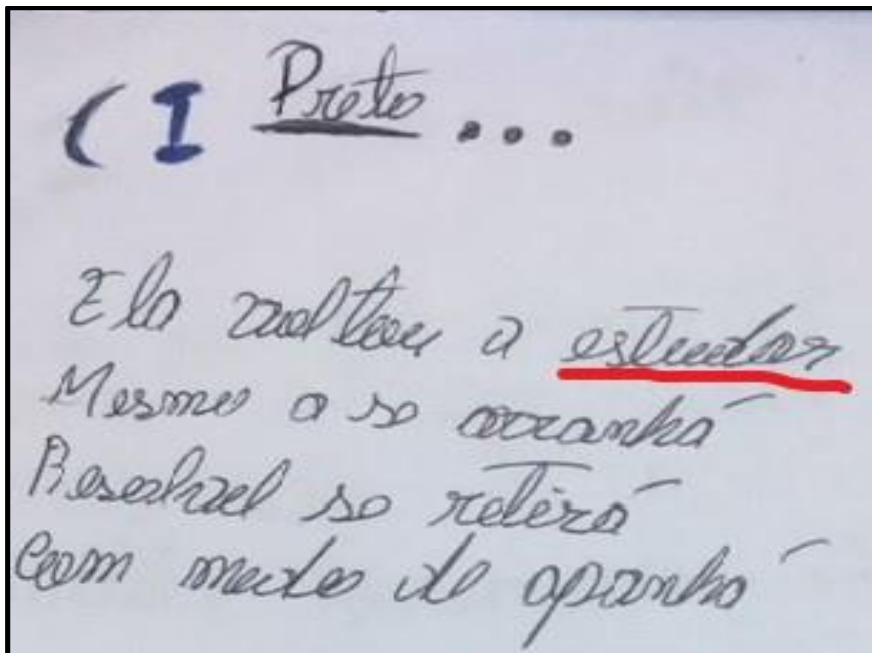 (I Preto...
Ela voltou a estudar
Mesmo a se arranhá
Resolveu se retirá
Com medo de apanhá